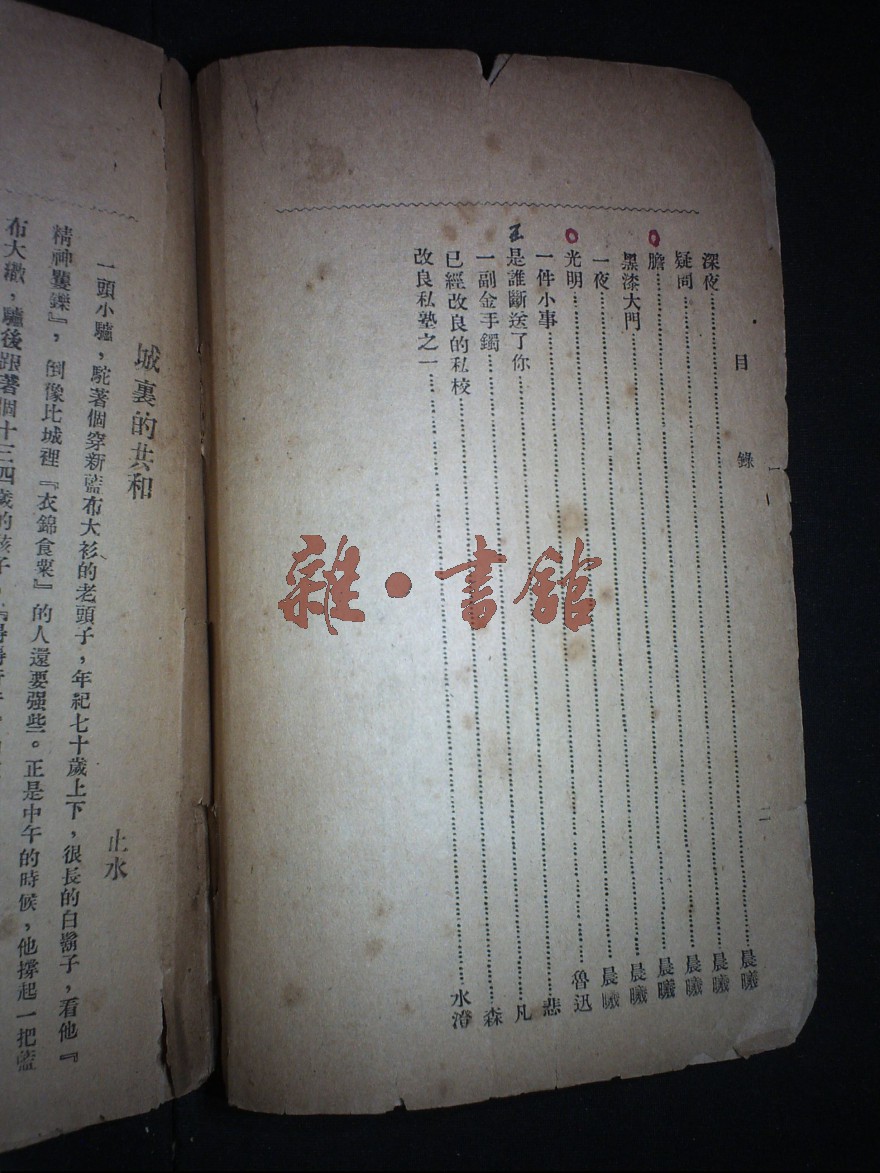 目錄
深夜……晨曦
疑問……晨曦
膽……晨曦
黑漆大門……晨曦
一夜……晨曦
光明……晨曦
一件小事……魯迅
是誰斷送了你……悲
一副金手鐲……凡
已經改良的私校……森
改良私塾之一……水澄
二
城裏的共和
止水
一頭小驢，駝著個穿新藍布大衫的老頭子，年紀七十歲上下，很長的白鬍子，看他『
精神矍鑠』，倒像比城裡『衣錦食粟』的人還要强些。正是中午的時候，他撐起一把藍
布大繖，驢後跟著個十三四歲的孩子，
雜·書館